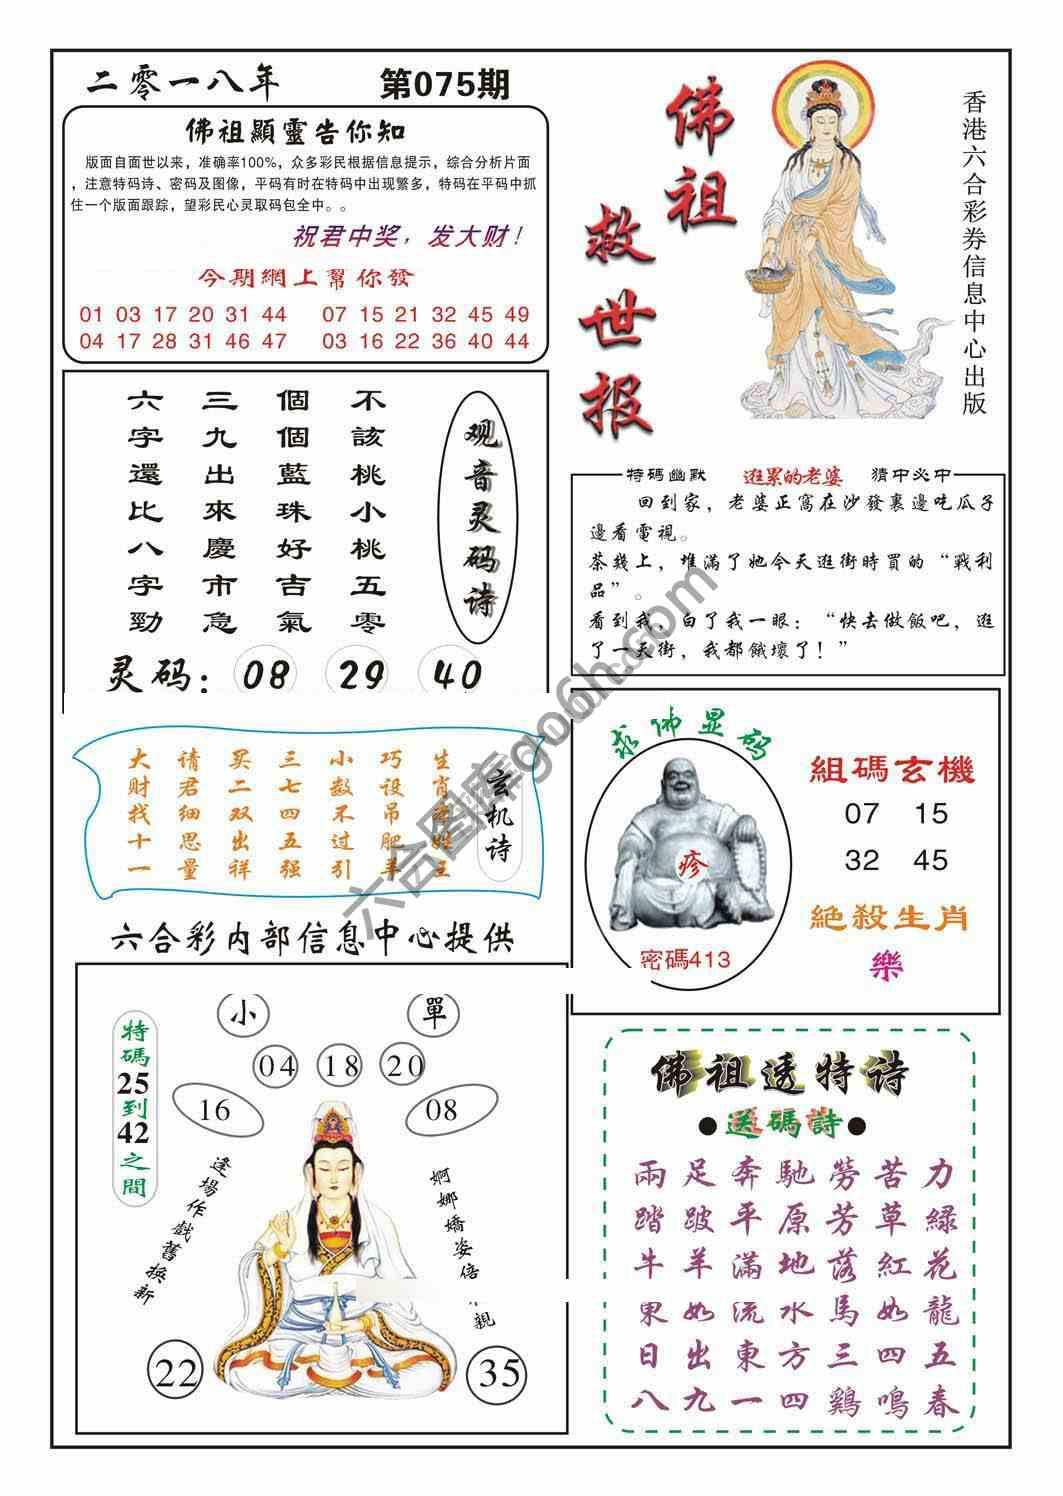 二零一八年 第075期
佛祖顯靈告你知
版面自面世以来，准确率100%，众多彩民根据信息提示，综合分析片面
，注意特码诗、密码及图像，平码有时在特码中出现繁多，特码在平码中抓
住一个版面跟踪，望彩民心灵取码包全中。。
祝君中奖，发大财！
今期網上幫你發
01 03 17 20 31 44 07 15 21 32 45 49
04 17 28 31 46 47 03 16 22 36 40 44
佛祖救世报
香港六合彩券信息中心出版
观音灵码诗
不該桃小桃五零
個個藍珠好吉氣
三九出來慶市急
六字還比八字勁
灵码：08 29 40
特碼幽默 逛累的老婆 猜中必中
回到家，老婆正窩在沙發裏邊吃瓜子
邊看電視。
茶幾上，堆滿了她今天逛街時買的“戰利
品”。
看到我，白了我一眼：“快去做飯吧，逛
了一天街，我都餓壞了！”
玄机诗
生肖
巧设吊肥羊
小数不过引
三七四五强
买二双出祥
请君细思量
大财找十一
求佛显码
疹
密碼413
組碼玄機
07 15
32 45
絕殺生肖
樂
六合彩内部信息中心提供
小 單
04 18 20
16 08
特碼25到42之間
逢場作戲舊換新
婀娜嬌姿倍 親
22 35
佛祖透特诗
●送碼詩●
兩足奔馳勞苦力
踏跛平原芳草綠
牛羊滿地落紅花
東如流水馬如龍
日出東方三四五
八九一四鷄鳴春
六合图库go06h.com